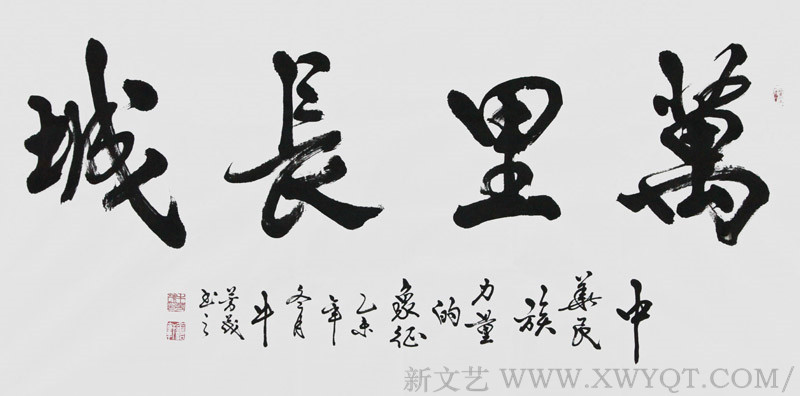 萬里長城
中華民族力量的象征乙未年冬月牛芳義書之
新文艺 WWW.XWYQT.COM/